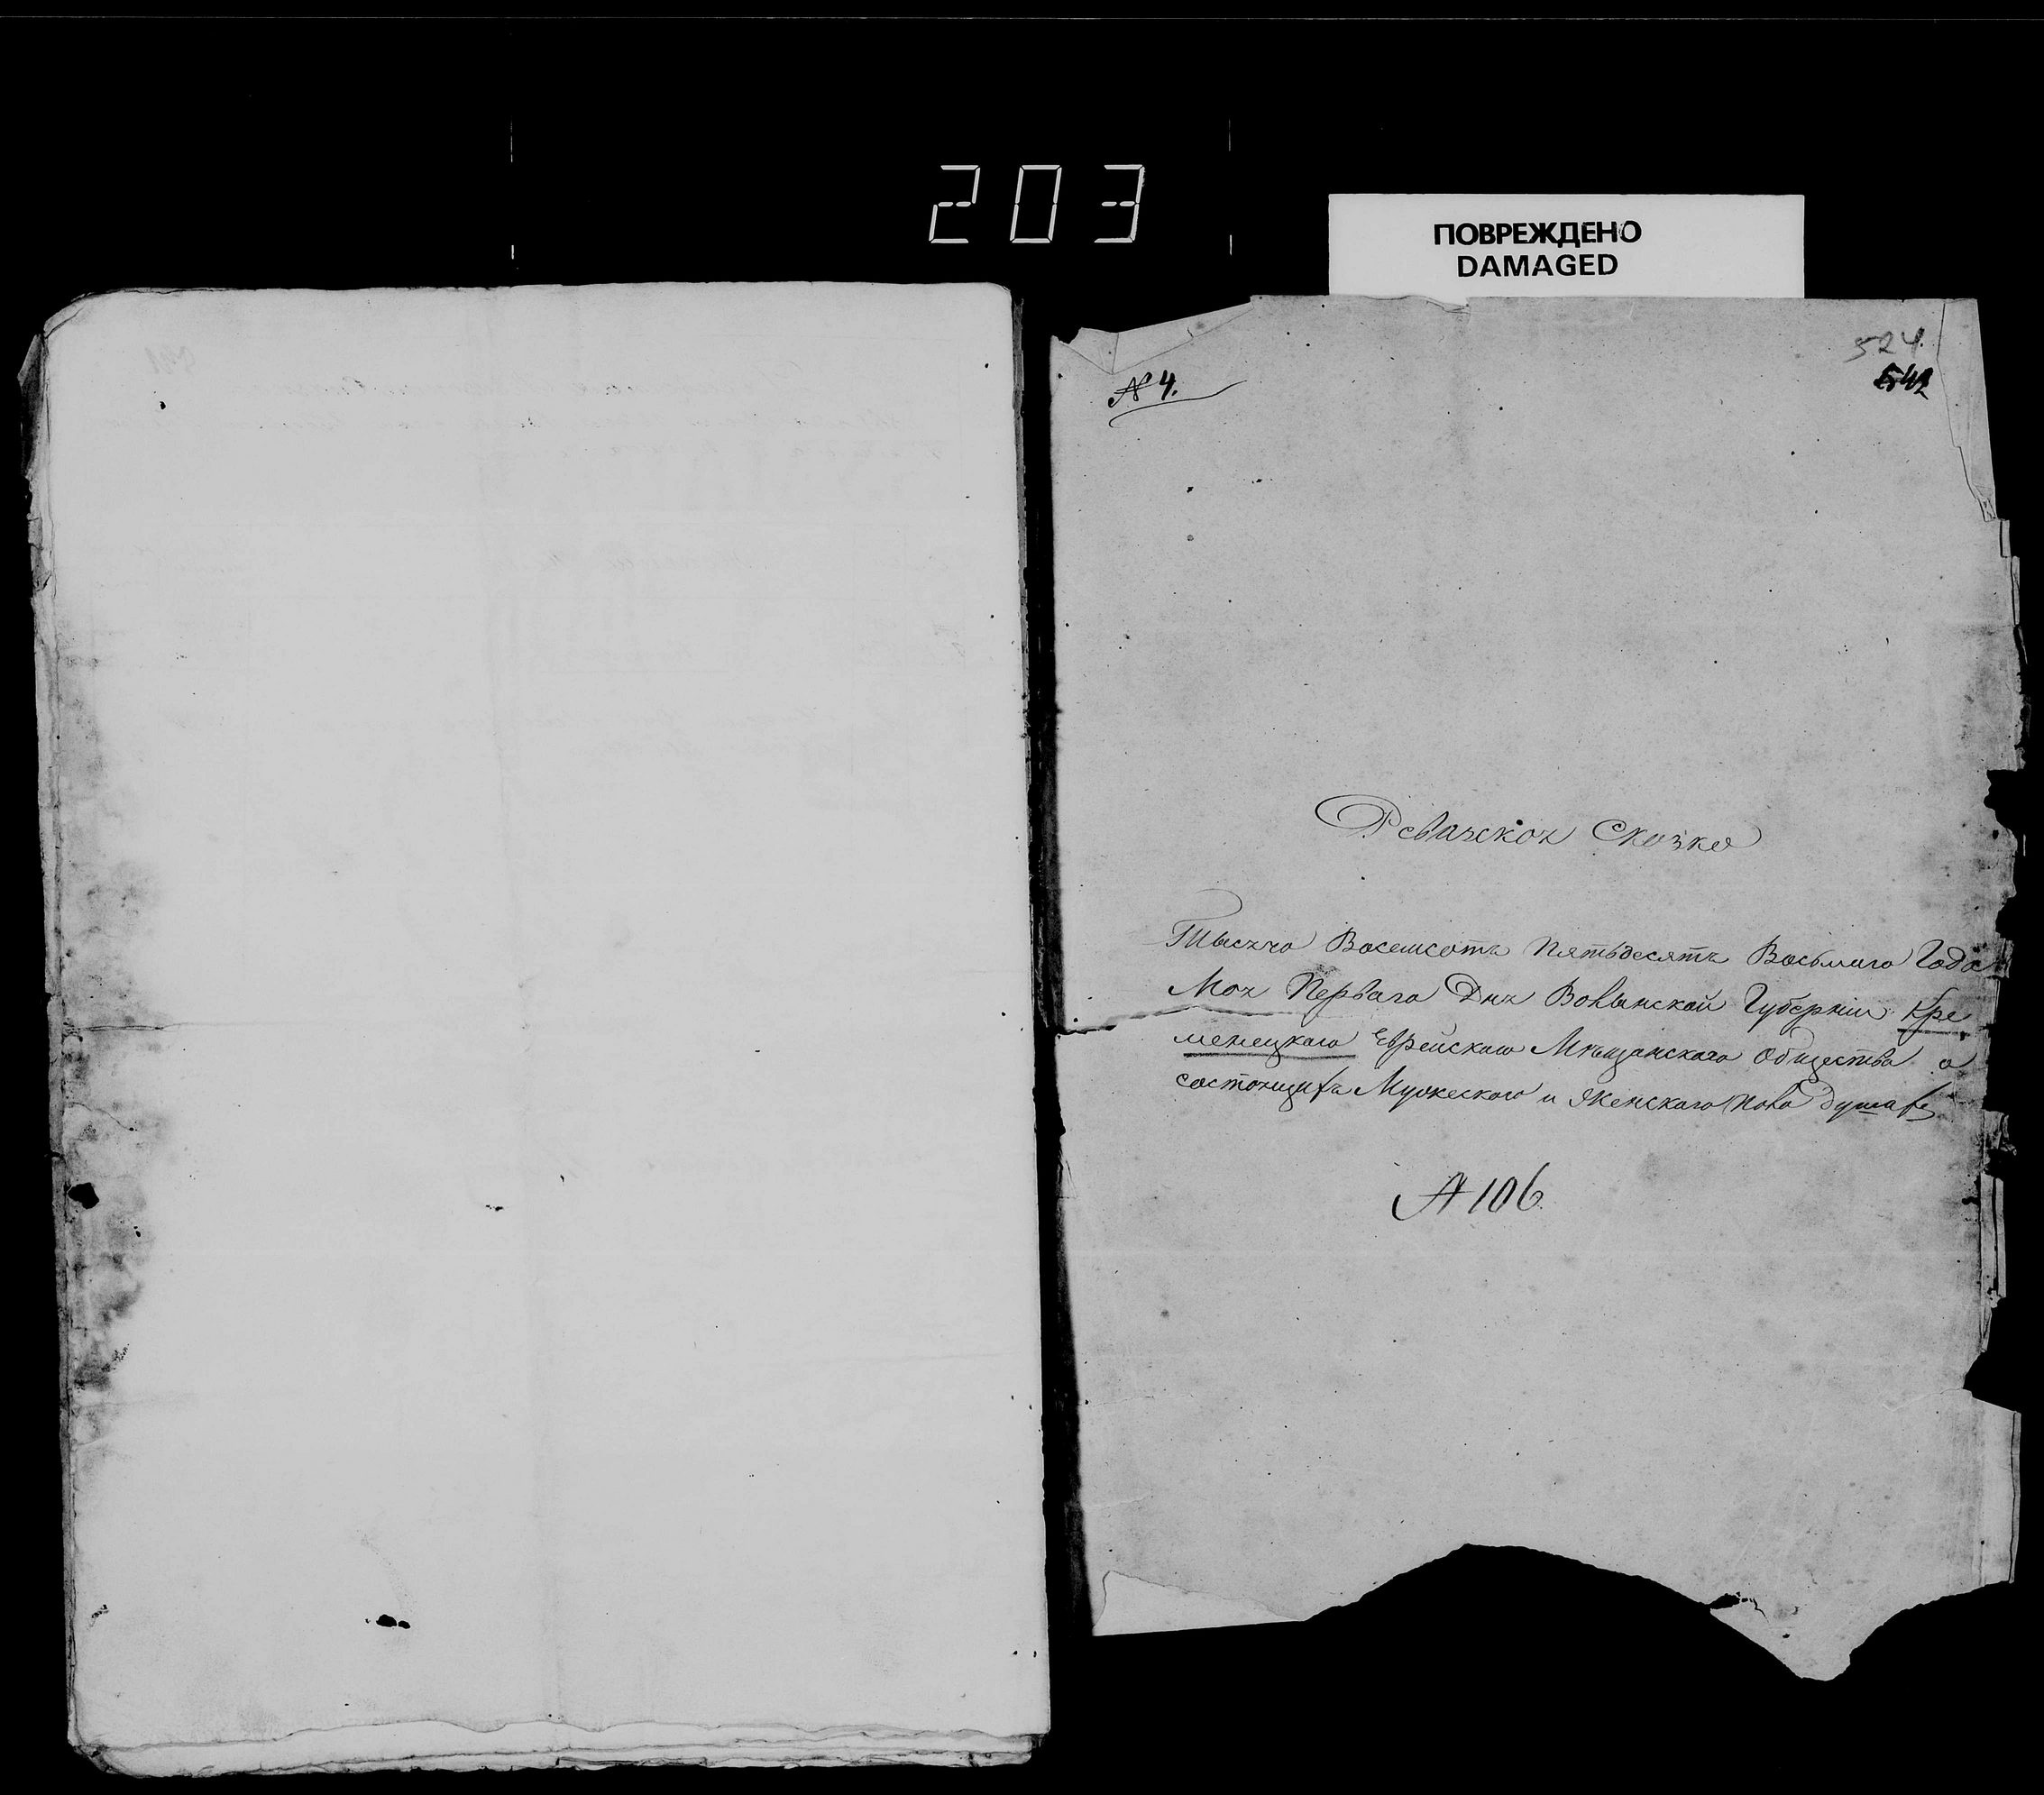 203
ПОВРЕЖДЕНО
DAMAGED
524.
542
№ 4.
Ревизская Сказка
Тысяча Восемсотъ Пятьдесятъ Восьмаго Года
Мая Перваго Дня Волынской Губерніи Кре
менецкаго Еврейскаго Мѣщанскаго Общества о
состоящихъ Мужескаго и Женскаго пола душахъ
№ 106.